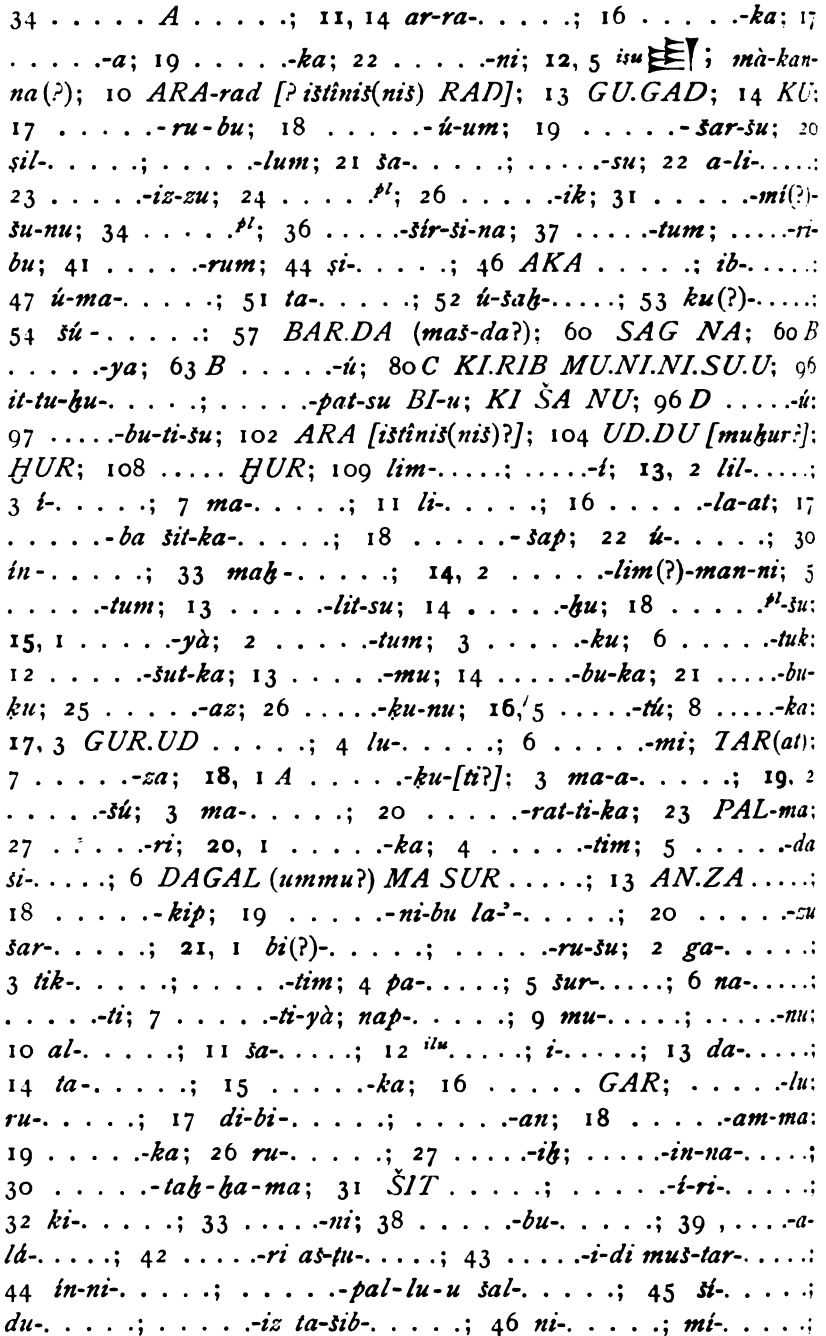 34 . . . . . A . . . . .; 11, 14 ar-ra-. . . . .; 16 . . . . .-ka; 17
. . . . .-a; 19 . . . . .-ka; 22 . . . . .-ni; 12, 5 iṣu ; mà-kan-
na(?); 10 ARA-rad [? ištîniš(niš) RAD]; 13 GU.GAD; 14 KU;
17 . . . . .-ru-bu; 18 . . . . .-ú-um; 19 . . . . .-šar-šu; 20
ṣil-. . . . .; . . . . .-lum; 21 ša-. . . . .; . . . . .-su; 22 a-li-. . . . .;
23 . . . . .-iz-zu; 24 . . . . .pl; 26 . . . . .-ik; 31 . . . . .-mí(?)-
šu-nu; 34 . . . . .pl; 36 . . . . .-šír-ši-na; 37 . . . . .-tum; . . . . .-ri-
bu; 41 . . . . .-rum; 44 ṣi-. . . . .; 46 AKA . . . . .; ib-. . . . .;
47 ú-ma-. . . . .; 51 ta-. . . . .; 52 ú-šaḫ-. . . . .; 53 ku(?)-. . . . .;
54 šú-. . . . .: 57 BAR.DA (maš-da?); 60 SAG NA; 60 B
. . . . .-ya; 63 B . . . . .-ú; 80 C KI.RIB MU.NI.NI.SU.U; 96
it-tu-ḫu-. . . . .; . . . . .-pat-su BI-u; KI ŠA NU; 96 D . . . . .-ú:
97 . . . . .-bu-ti-šu; 102 ARA [ištîniš(niš)?]; 104 UD.DU [muḫur?];
ḪUR; 108 . . . . . ḪUR; 109 lim-. . . . .; . . . . .-í; 13, 2 lil-. . . . .;
3 í-. . . . .; 7 ma-. . . . .; 11 li-. . . . .; 16 . . . . .-la-at; 17
. . . . .-ba šit-ka-. . . . .; 18 . . . . .-šap; 22 ú-. . . . .; 30
ín-. . . . .; 33 maḫ-. . . . .; 14, 2 . . . . .-lim(?)-man-ni; 5
. . . . .-tum; 13 . . . . .-lit-su; 14 . . . . .-ḫu; 18 . . . . .pl-šu;
15, 1 . . . . .-yà; 2 . . . . .-tum; 3 . . . . .-ku; 6 . . . . .-tuk;
12 . . . . .-šut-ka; 13 . . . . .-mu; 14 . . . . .-bu-ka; 21 . . . . .-bu-
ḳu; 25 . . . . .-az; 26 . . . . .-ḳu-nu; 16, 5 . . . . .-tú; 8 . . . . .-ka:
17, 3 GUR.UD . . . . .; 4 lu-. . . . .; 6 . . . . .-mi; TAR(at);
7 . . . . .-za; 18, 1 A . . . . .-ḳu-[ti?]; 3 ma-a-. . . . .; 19, 2
. . . . .-šú; 3 ma-. . . . .; 20 . . . . .-rat-ti-ka; 23 PAL-ma;
27 . . . . .-ri; 20, 1 . . . . .-ka; 4 . . . . .-tim; 5 . . . . .-da
ši-. . . . .; 6 DAGAL (ummu?) MA SUR . . . . .; 13 AN.ZA . . . . .;
18 . . . . .-kip; 19 . . . . .-ni-bu la-ʾ-. . . . .; 20 . . . . .-zu
šar-. . . . .; 21, 1 bi(?)-. . . . .; . . . . .-ru-šu; 2 ga-. . . . .:
3 tik-. . . . .; . . . . .-tim; 4 pa-. . . . .; 5 šur-. . . . .; 6 na-. . . . .;
. . . . .-ti; 7 . . . . .-ti-yà; nap-. . . . .; 9 mu-. . . . .; . . . . .-nu;
10 al-. . . . .; 11 ša-. . . . .; 12 ilu. . . . .; i-. . . . .; 13 da-. . . . .;
14 ta-. . . . .; 15 . . . . .-ka; 16 . . . . . GAR; . . . . .-lu:
ru-. . . . .; 17 di-bi-. . . . .; . . . . .-an; 18 . . . . .-am-ma:
19 . . . . .-ka; 26 ru-. . . . .; 27 . . . . .-iḫ; . . . . .-in-na-. . . . .;
30 . . . . .-taḫ-ḫa-ma; 31 ŠIT . . . . .; . . . . .-í-ri-. . . . .:
32 ki-. . . . .; 33 . . . . .-ni; 38 . . . . .-bu-. . . . .; 39 , . . . .-a-
lá-. . . . .; 42 . . . . .-ri aš-ṭu-. . . . .; 43 . . . . .-i-di muš-tar-. . . . .:
44 ín-ni-. . . . .; . . . . .-pal-lu-u šal-. . . . .; 45 ší-. . . . .;
du-. . . . .; . . . . .-iz ta-šib-. . . . .; 46 ni-. . . . .; mí-. . . . .;